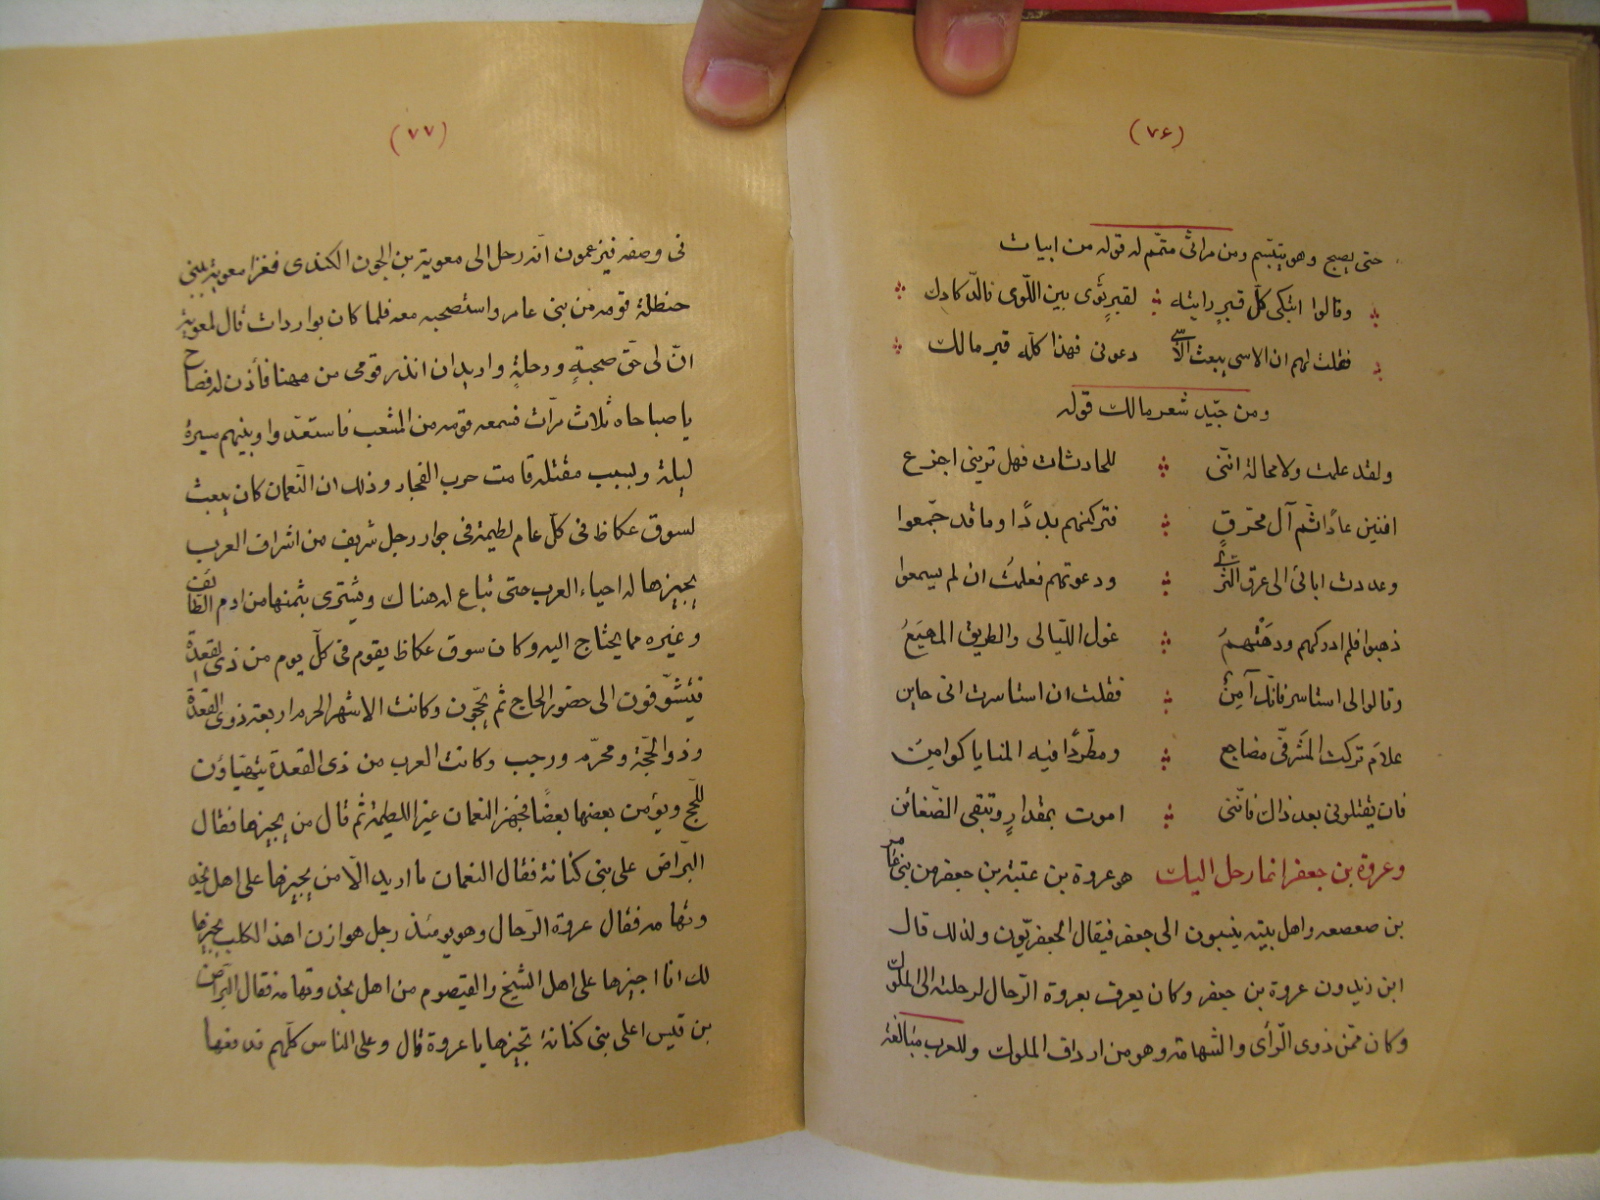 (٧۶)
حتى يصبح وهو يتبسّم ومن مراثى متمّم له قوله من ابيات
وقالوا اتبكى كلّ قبر رايته لقبرٍ ثوى بين اللّوى فالدّكادك
فقلت لهم ان الاسى يبعث الاسى دعونى فهذا كلّه قبر مالك
ومن جيّد شعر مالك قوله
ولقد علمت ولا محالة انّنى للحادثات فهل ترينى اجزع
افنين عادًا ثمّ آل محرّقٍ فتركنهم بددًا وما قد جمّعوا
وعددت ابائى الى عرق الثّرى ودعوتهم فعلمتُ ان لم يسمعوا
ذهبوا فلم ادركهم ودهَتْهمُ غول اللّيالى والطريق المهيَعُ
وقالوا لى استاسر فانّك آمِنٌ فقلت ان استاسرت انى حاين
علامَ تركت المَشرفىّ مضاجع ومطّردًا فيه المنايا كوامِنُ
فان يقتلونى بعد ذاك فانّنى اموت بمقدارٍ وتبقى الضّغائن
وعروة بن جعفر انما رحل اليك هو عروة بن عتبة بن جعفر من بنى عامر
بن صعصعه واهل بيته ينسبون الى جعفر فيقال الجعفريّون ولذلك قال
ابن زيدون عروة بن جعفر وكان يعرف بعروة الرّحال لرحلته الى الملوك
وكان ممّن ذوى الرّأى والشهامة وهو من ارداف الملوك وللعرب مبالغة
(٧٧)
فى وصفه فيزعمون انّه رحل الى معوية بن الجون الكندى فغزا معوية بنى
حنظلة قومه من بنى عامر واستصحبه معه فلما كان بواردات قال لمعوية
انّ لى حقّ صحبةٍ ورحلةٍ واريد ان انذر قومى من ههنا فأذن له فصاح
يا صباحاه ثلاث مرّات فسمعه قومه من الشعب فاستعدّوا وبينهم مسيرة
ليلة وبسبب مقتله قامت حرب الفجار وذلك ان النّعمان كان يبعث
لسوق عكاظ فى كلّ عام لطيمة فى جوار رجل شريف من اشراف العرب
يجيزها له احياء العرب حتى تباع له هناك ويشترى بثمنها من ادم الطائف
وغيره مما يحتاج اليه وكان سوق عكاظ يقوم فى كلّ يوم من ذى القعدة
فيتسّوقون الى حضور الحاج ثم يحجّون وكانت الاشهر الحرم اربعة ذوى القعدة
وذو الحجّة ومحرّم ورجب وكانت العرب من ذى القعدة يتهيّاؤن
للحّج ويؤمن بعضها بعضًا فجهز النعمان عير اللطيمة ثم قال من يجيزها فقال
البرّاض على بنى كنانة فقال النعمان ما اريد الّا من يجيزها على اهل نجد
وتهامه فقال عروة الرّحال وهو يومئذ رجل هوازن اهذا الكلب يجيزها
لك انا اجيزها على اهل الشيخ والقيصوم من اهل نجد وتهامه فقال البرّاض
بن قيس اعلى بنى كنانة تجيزها يا عروة قال وعلى الناس كلّهم فدفعها